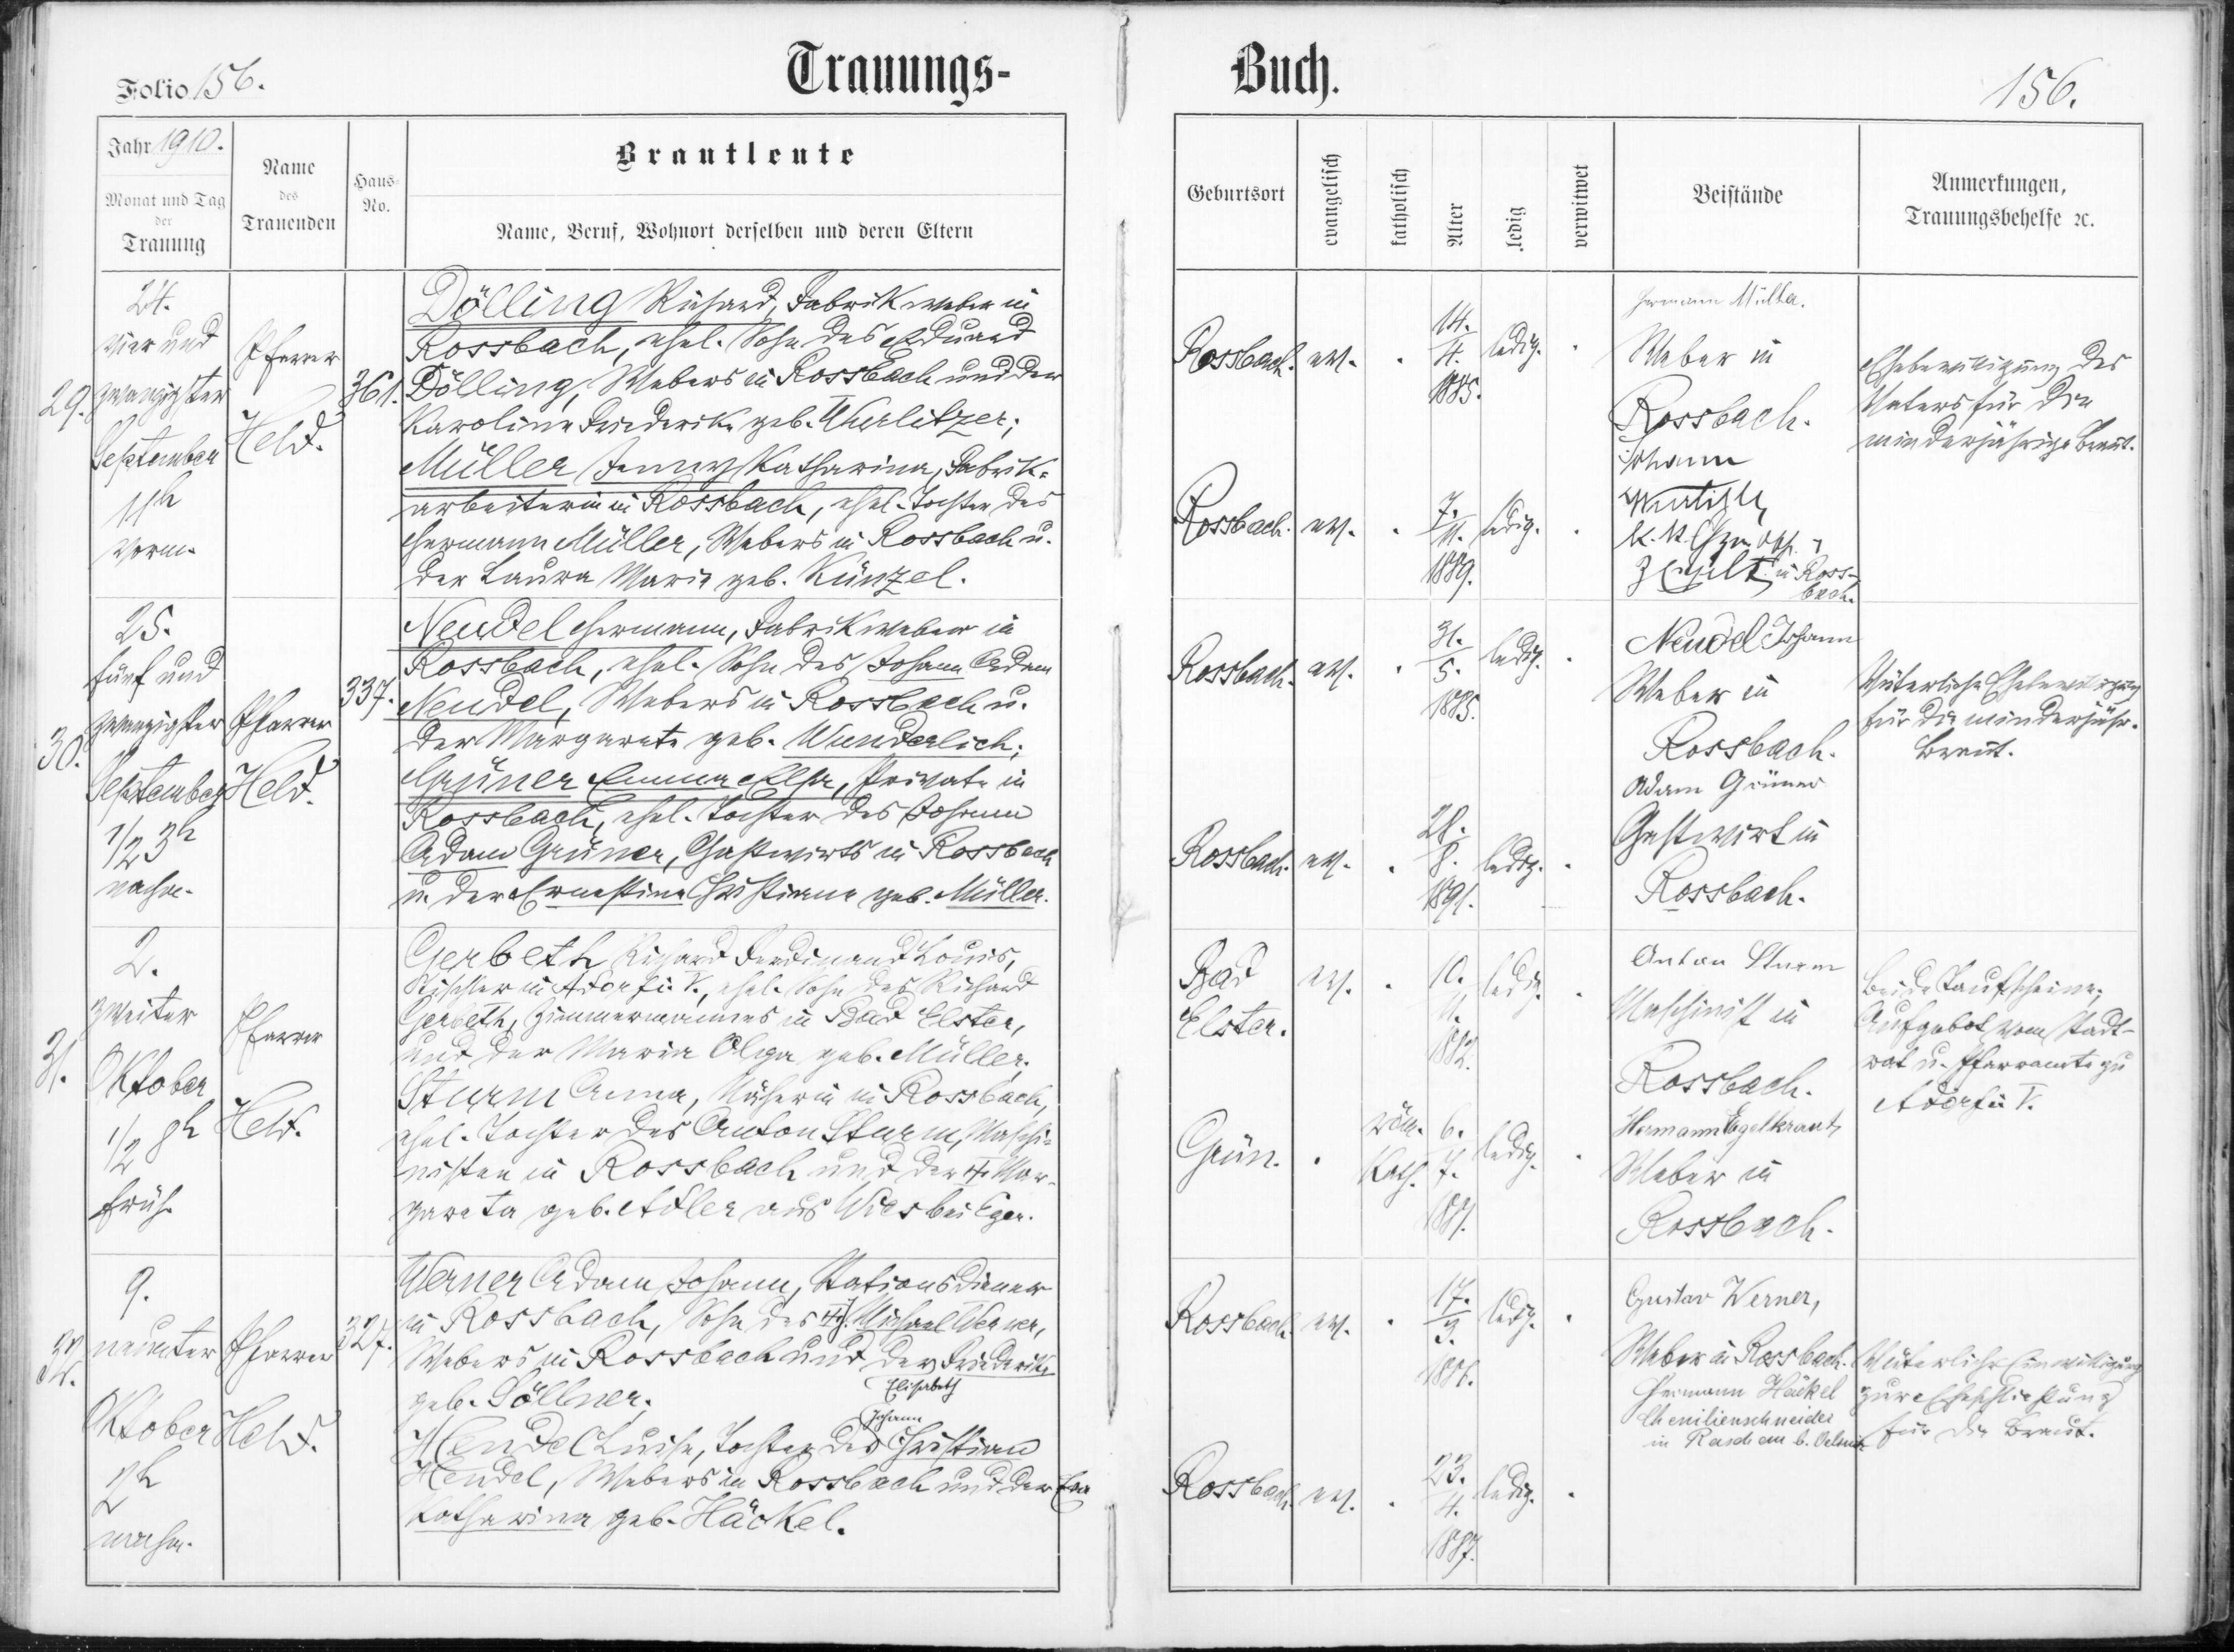 Folio 156.
Trauungs-
Buch.
156.
Jahr 1910.
Monat und Tag
der
Trauung
Name
des
Trauenden
Haus-
No.
Brautleute
Name, Beruf, Wohnort derselben und deren Eltern
Geburtsort
evangelisch
katholisch
Alter
ledig
verwitwet
Beistände
Anmerkungen,
Trauungsbehelfe ꝛc.
29.
24.
vier und
zwanzigster
September
11h
vorm.
Pfarrer
Held.
361.
Dölling Richard, Fabrikweber in
Rossbach, ehel. Sohn des Eduard
Dölling, Webers in Rossbach und der
Karoline Friederike geb. Wurlitzer;
Müller Jenny Katharina, Fabrik-
arbeiterin in Rossbach, ehel. Tochter des
Hermann Müller, Webers in Rossbach u.
der Laura Maria geb. Künzel.
Rossbach. ev. . 14. 4. 1885. ledig. .
Rossbach. ev. . 7. 11. 1889. ledig. .
Hermann Müller.
Weber in
Rossbach.
Johann
k. k.
in Ross-
bach.
Ehebewilligung des
Vaters für die
minderjährige Braut.
30.
25.
fünf und
zwanzigster
September
1/2 3h
nachm.
Pfarrer
Held.
337.
Neudel Hermann, Fabrikweber in
Rossbach, ehel. Sohn des Johann Adam
Neudel, Webers in Rossbach u.
der Margareta geb. Wunderlich;
Grüner Emma Elsa, Private in
Rossbach, ehel. Tochter des Johann
Adam Grüner, Gastwirts in Rossbach
u. der Ernestine Christiane geb. Müller.
Rossbach. ev. . 31. 5. 1885. ledig. .
Rossbach. ev. . 28. 8. 1891. ledig. .
Neudel Johann
Weber in
Rossbach.
Adam Grüner
Gastwirt in
Rossbach.
Väterliche Ehebewilligung
für die minderjähr.
Braut.
31.
2.
zweiter
Oktober
1/2 8h
früh.
Pfarrer
Held.
Gerbeth Richard Ferdinand Louis,
Tischler in Adorf i. V., ehel. Sohn des Richard
Gerbeth, Zimmermannes in Bad Elster,
und der Maria Olga geb. Müller.
Sturm Anna, Näherin in Rossbach,
ehel. Tochter des Anton Sturm, Maschi-
nisten in Rossbach und der † Mar-
gareta geb. Adler aus Wies bei Eger.
Bad
Elster.
ev. . 10. 11. 1882. ledig. .
Grün. . röm. kath. 6. 7. 1887. ledig. .
Anton Sturm
Maschinist in
Rossbach.
Hermann Egelkraut
Weber in
Rossbach.
Beide Taufscheine,
Aufgebot vom Stadt-
rat u. Pfarramte zu
Adorf i. V.
32.
9.
neunter
Oktober
2h
nachm.
Pfarrer
Held.
327.
Werner Adam Johann, Stationsdiener
in Rossbach, Sohn des † J. Michael Werner,
Webers in Rossbach und der Friederike
Elisabeth
geb. Söllner.
Johann
Hendel Luise, Tochter des Christian
Hendel, Webers in Rossbach und der Eva
Katharina geb. Häckel.
Rossbach. ev. . 17. 3. 1886. ledig. .
Rossbach. ev. . 23. 4. 1887. ledig. .
Gustav Werner,
Weber in Rossbach.
Hermann Häckel
Chenillenschneider
in Raschau b. Oelsnitz
Väterliche Einwilligung
zur Eheschließung
für die Braut.